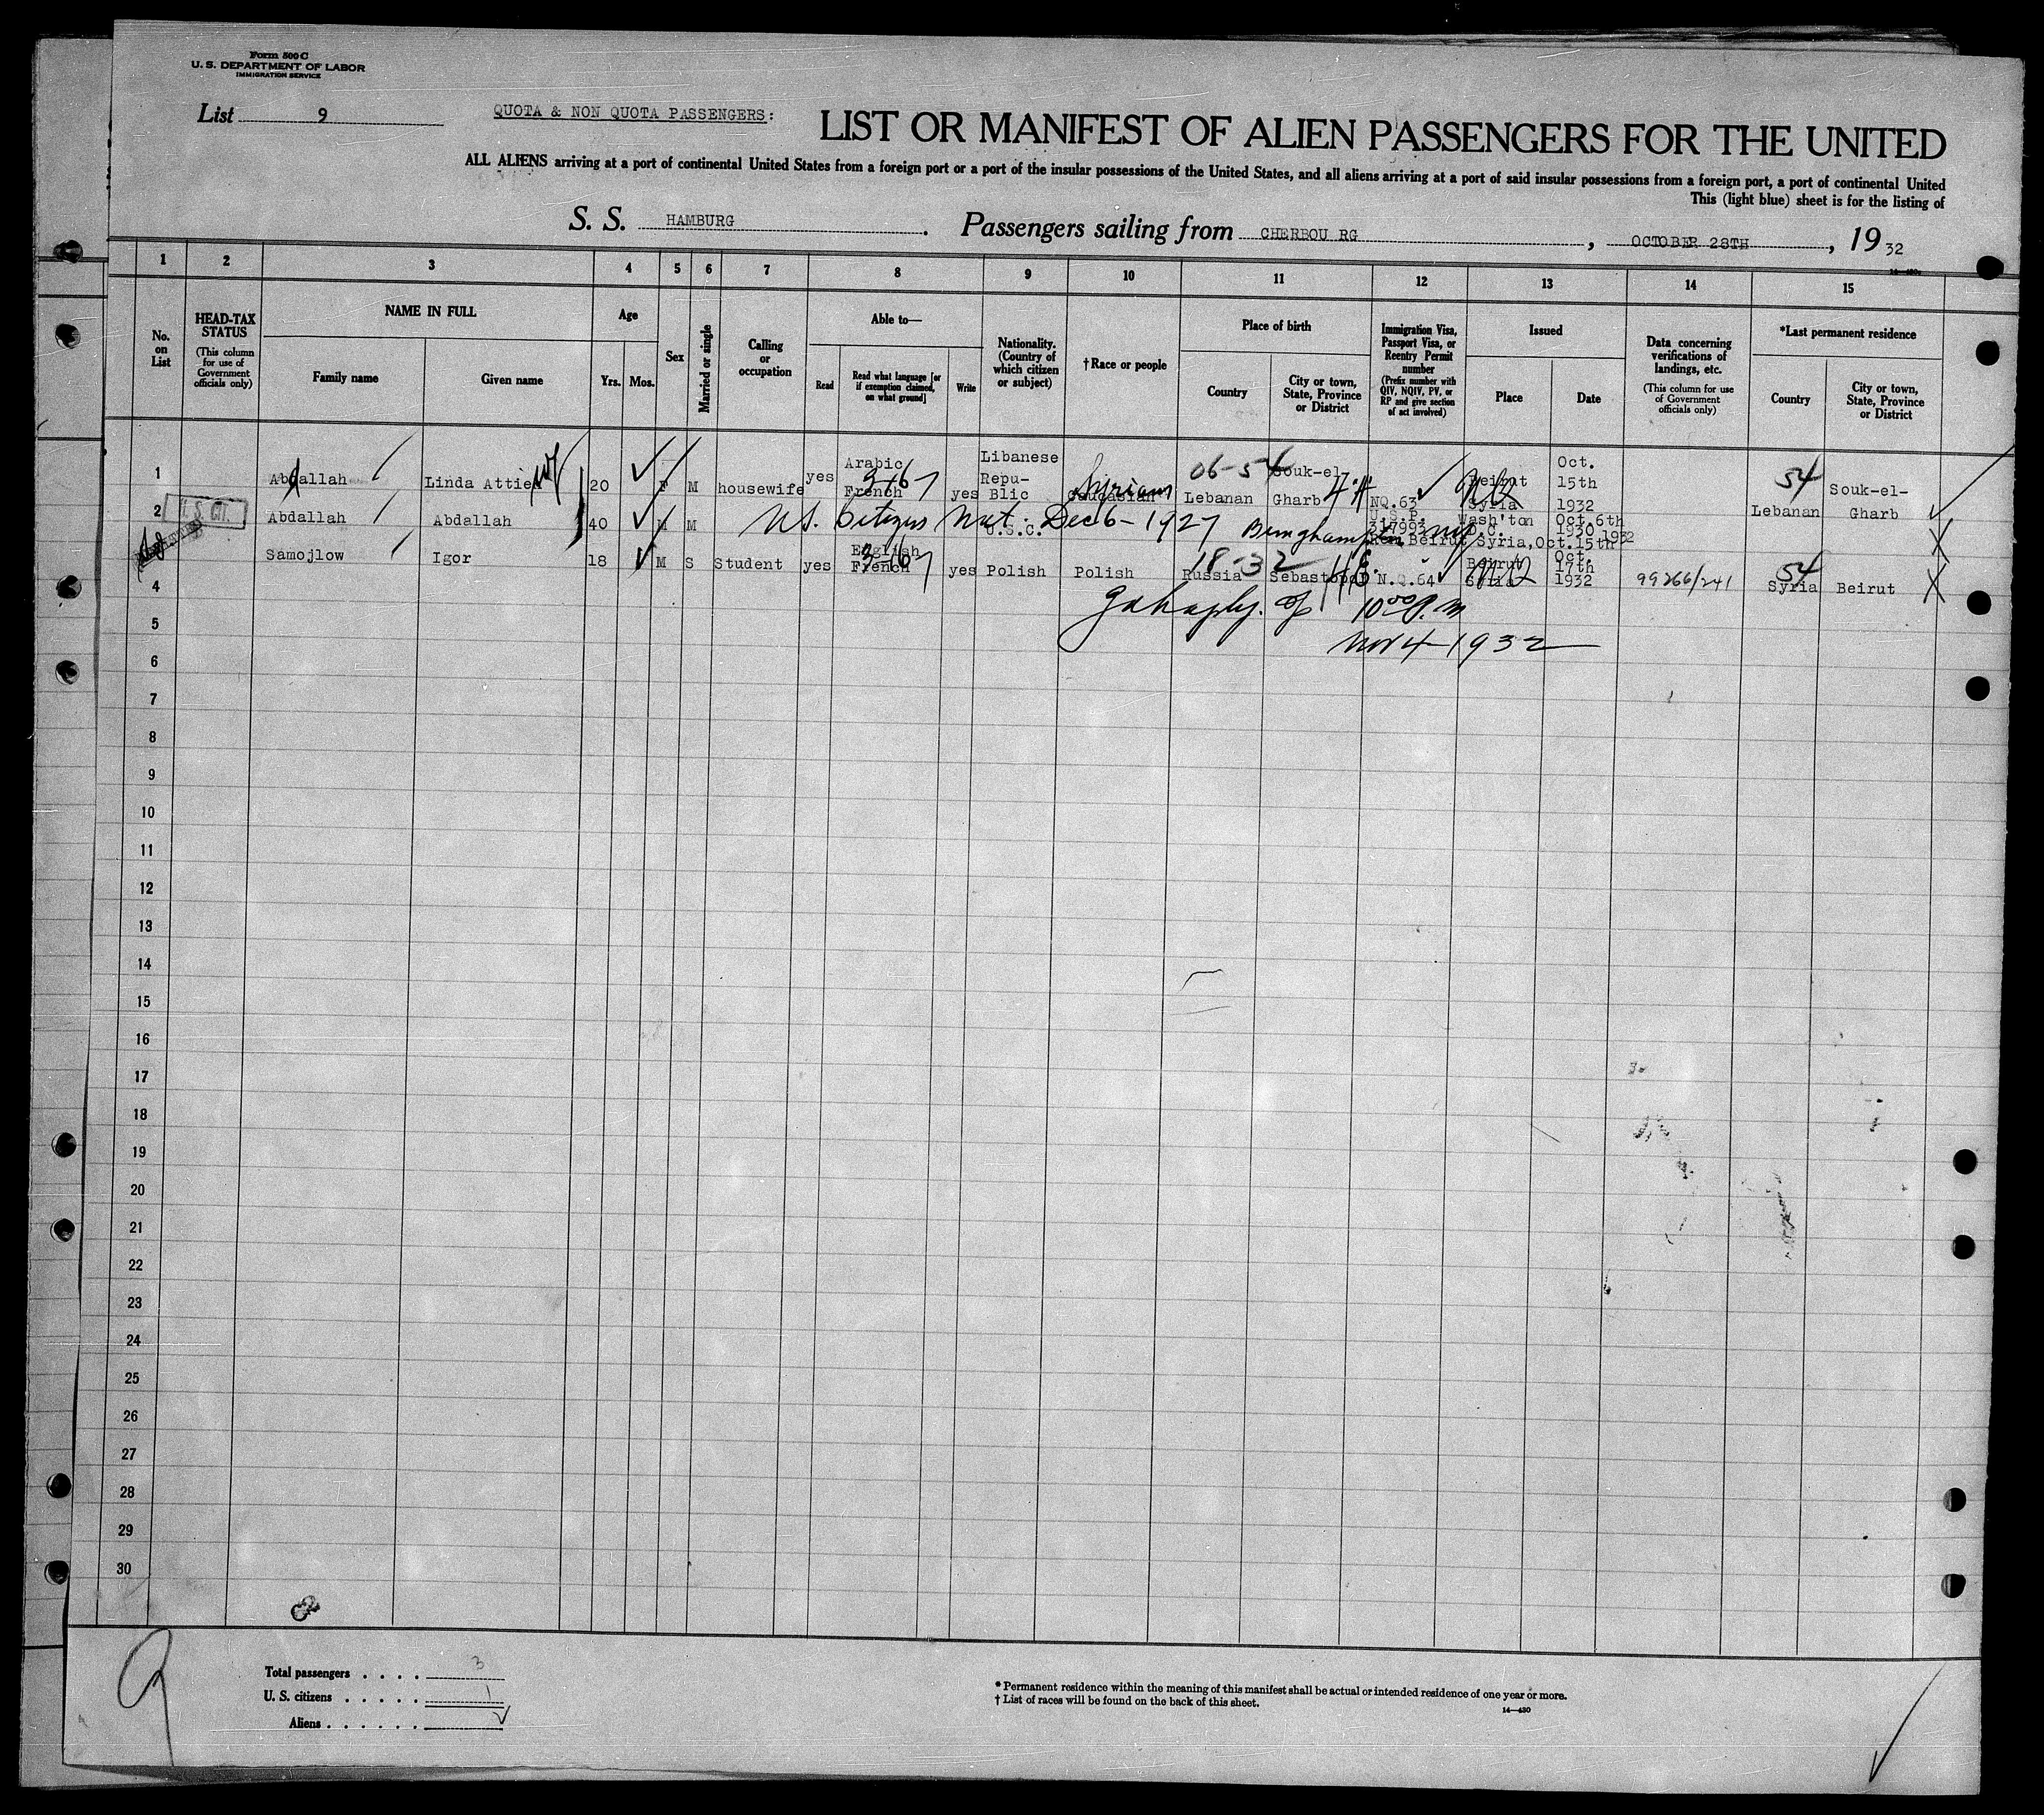 Form 500 C
U. S. DEPARTMENT OF LABOR
IMMIGRATION SERVICE
List 9
QUOTA & NON QUOTA PASSENGERS:
LIST OR MANIFEST OF ALIEN PASSENGERS FOR THE UNITED
ALL ALIENS arriving at a port of continental United States from a foreign port or a port of the insular possessions of the United States, and all aliens arriving at a port of said insular possessions from a foreign port, a port of continental United
This (light blue) sheet is for the listing of
S. S. HAMBURG. Passengers sailing from CHERBOU RG, OCTOBER 28TH, 19 32
1 2 3 4 5 6 7 8 9 10 11 12 13 14 15
No. on List
HEAD-TAX STATUS (This column for use of Government officials only)
NAME IN FULL
Family name
Given name
Age
Yrs. Mos.
Sex
Married or single
Calling or occupation
Able to—
Read
Read what language [or if exemption claimed, on what ground]
Write
Nationality. (Country of which citizen or subject)
† Race or people
Place of birth
Country
City or town, State, Province or District
Immigration Visa, Passport Visa, or Reentry Permit number (Prefix number with QIV, NQIV, PV, or RP and give section of act involved)
Issued
Place
Date
Data concerning verifications of landings, etc. (This column for use of Government officials only)
*Last permanent residence
Country
City or town, State, Province or District
1 Abdallah Linda Attie 20 F M housewife yes Arabic French yes Libanese Repu- Blic Caucasian Syrian 06-54 Lebanan Souk-el- Gharb NQ.63 Beirut Syria Oct. 15th 1932 54 Lebanan Souk-el- Gharb
2 U.S. CIT. Abdallah Abdallah 40 M M U.S. Citizen Nat. Dec 6-1927 Binghampton NY U.S.C. U.S.P. 317993 Wash'ton D.C. Oct.6th 1930
Beirut Syria, Oct.15th 1932
Samojlow Igor 18 M S Student yes English French yes Polish Polish 18-32 Russia Sebastopol N.Q.64 Beirut Syria Oct. 17th 1932 99266/241 54 Syria Beirut
4
10 00 P.m
5
Nov 4-1932
6
7
8
9
10
11
12
13
14
15
16
17
18
19
20
21
22
23
24
25
26
27
28
29
30
9
Total passengers . . . . 3
U. S. citizens . . . . . 1
Aliens . . . . . .
* Permanent residence within the meaning of this manifest shall be actual or intended residence of one year or more.
† List of races will be found on the back of this sheet.
14—430